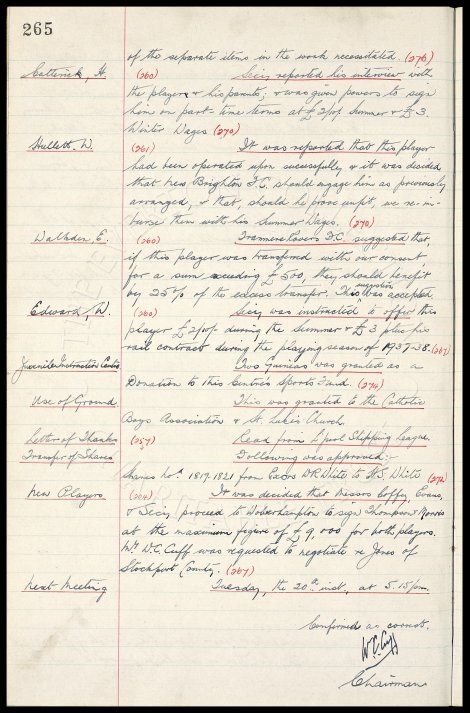 265
of the separate items in the work necessitated. (276)
Catterick, H. (260) Secy reported his interview with
the player & his parents, & was given powers to sign
him on part-time terms at £2 p/w Summer & £3.
Winter Wages (270)
Hullett. W. (261) It was reported that this player
had been operated upon sucessfully & it was decided
that New Brighton F.C. should engage him as previously
arranged, & that, should he prove unfit, we re-im-
burse them with his Summer Wages. (270)
Walkden E. (260) Tranmere Rovers F.C. suggested that,
if this player was transferred with our consent,
for a sum exceeding £500, they should benefit
by 25% of the excess transfer. This suggestion was accepted
Edward, W. (260) Secy was instructed to offer this
player £2 p/w during the Summer & £3 plus his
rail contract during the playing season of 1937-38. (267)
Juvenile Instruction Centre Two guineas was granted as a
Donation to this Centre's Sports Fund. (274)
Use of Ground This was granted to the Catholic
Boys Association & St. Luke's Church.
Letter of Thanks (257) Read from L'pool Shipping League.
Transfer of Shares Following was approved:-
Shares Nos. 1817-1821 from Exors W.R. White to H.S. White (272)
New Players (264) It was decided that Messrs Coffey, Evans,
& Secy, proceed to Wolverhampton to sign Thompson & Morris
at the maximum figure of £9,000 for both players.
Mr W.C. Cuff was requested to negotiate re Jones of
Stockport County. (267)
Next Meeting Tuesday, the 20th inst, at 5.15 pm.
Confirmed as correct.
W.C. Cuff
Chairman